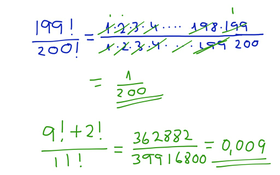 199!/200! = 1·2·3·4·····198·199/1·2·3·4·····199 200
= 1/200
9!+2!/11! = 362882/39916800 = 0,009